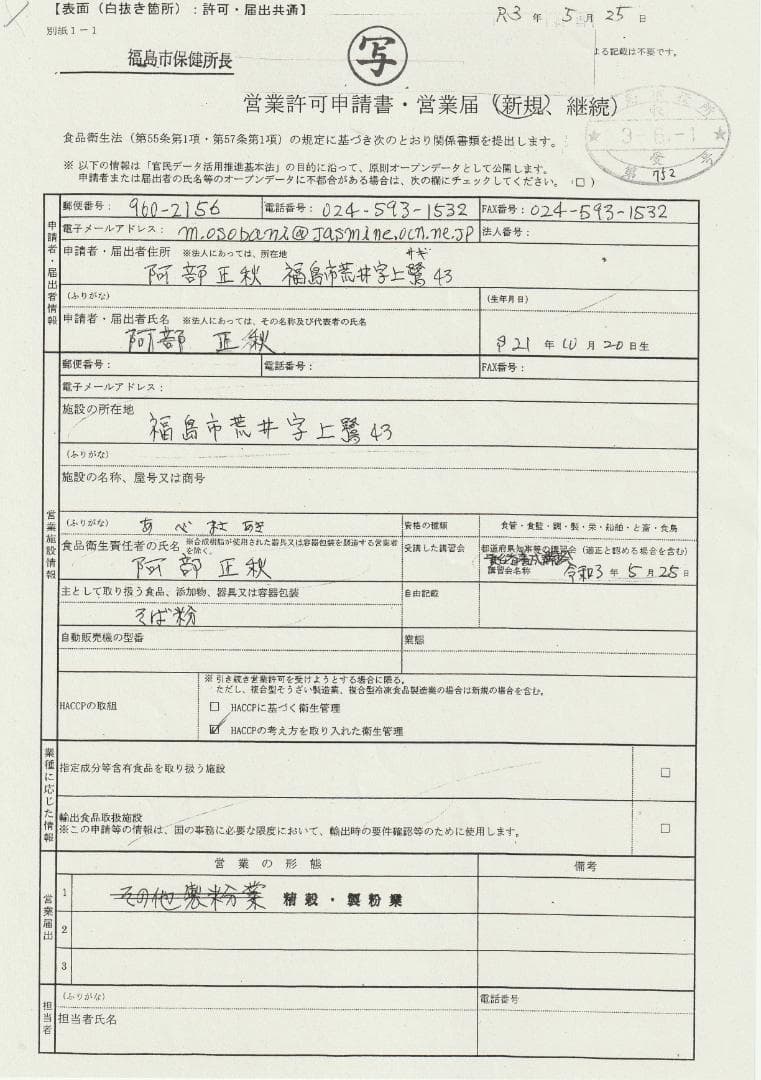 【表面（白抜き箇所）：許可・届出共通】
R3 年 5 月 25 日
別紙1－1
福島市保健所長
写
よる記載は不要です。
営業許可申請書・営業届（新規、継続）
食品衛生法（第55条第1項・第57条第1項）の規定に基づき次のとおり関係書類を提出します。
3-6.-1
第 752
※ 以下の情報は「官民データ活用推進基本法」の目的に沿って、原則オープンデータとして公開します。
申請者または届出者の氏名等のオープンデータに不都合がある場合は、次の欄にチェックしてください。（□）
申請者・届出者情報
郵便番号： 960-2156 電話番号： 024-593-1532 FAX番号： 024-593-1532
電子メールアドレス： m.osobani@jasmine.ocn.ne.jp 法人番号：
申請者・届出者住所 ※法人にあっては、所在地
サギ
阿部正秋 福島市荒井字上鷺43
（ふりがな） （生年月日）
申請者・届出者氏名 ※法人にあっては、その名称及び代表者の氏名
阿部 正秋 21 年 10 月 20 日生
営業施設情報
郵便番号： 電話番号： FAX番号：
電子メールアドレス：
施設の所在地
福島市荒井字上鷺43
（ふりがな）
施設の名称、屋号又は商号
（ふりがな） あべ まさ あき 資格の種類 食管・食監・調・製・栄・船舶・と畜・食鳥
食品衛生責任者の氏名 ※合成樹脂が使用された器具又は容器包装を製造する営業者を除く。
受講した講習会 都道府県知事等の講習会（適正と認める場合を含む）
阿部 正秋
講習会名称 令和3 年 5 月 25 日
主として取り扱う食品、添加物、器具又は容器包装 自由記載
そば粉
自動販売機の型番 業態
HACCPの取組
※ 引き続き営業許可を受けようとする場合に限る。
ただし、複合型そうざい製造業、複合型冷凍食品製造業の場合は新規の場合を含む。
□ HACCPに基づく衛生管理
☑ HACCPの考え方を取り入れた衛生管理
業種に応じた情報
指定成分等含有食品を取り扱う施設 □
輸出食品取扱施設
※この申請等の情報は、国の事務に必要な限度において、輸出時の要件確認等のために使用します。 □
営業届出
営業の形態 備考
1 その他製粉業 精穀・製粉業
2
3
担当者
（ふりがな） 電話番号
担当者氏名